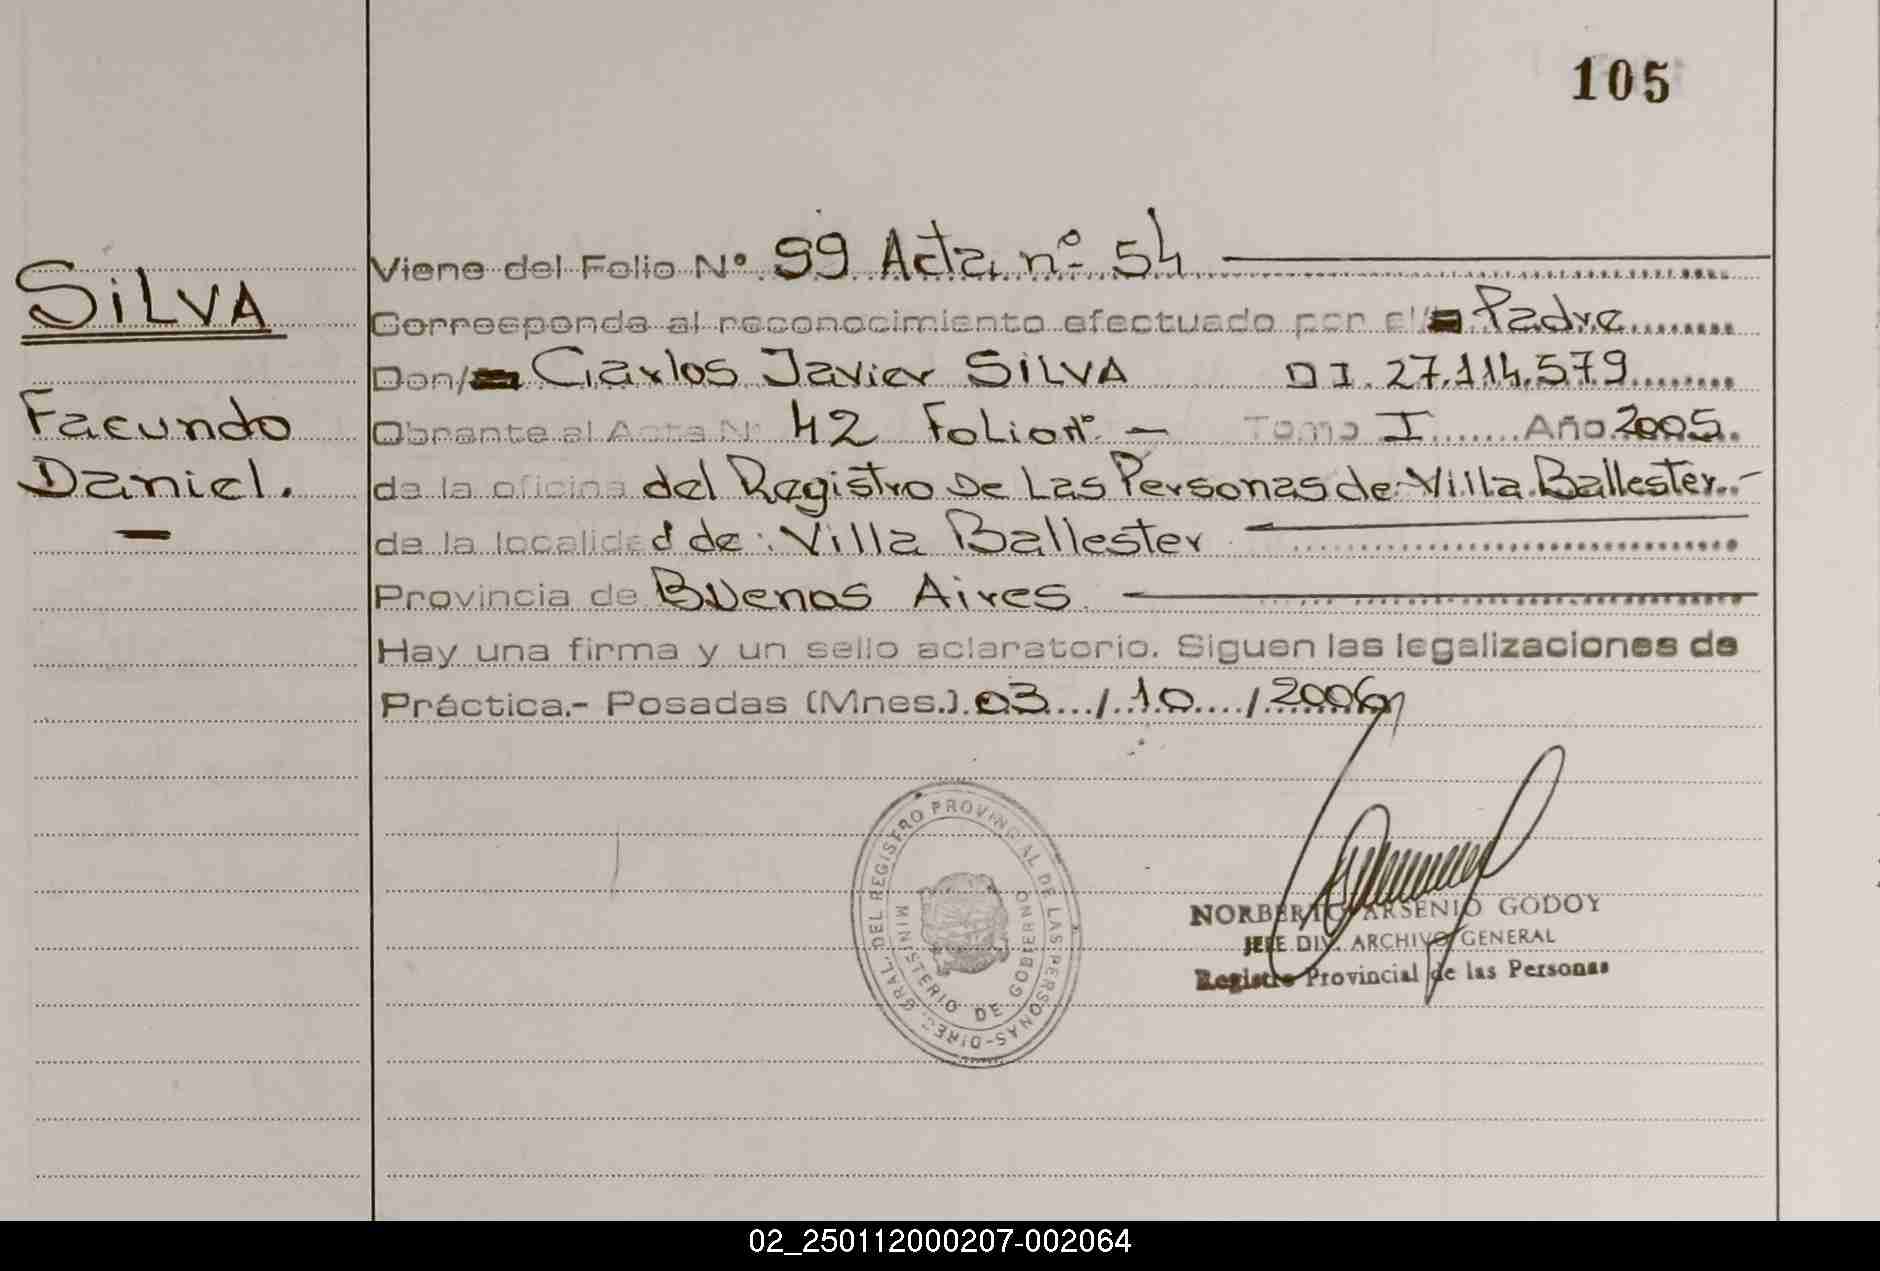 105
SILVA
Facundo
Daniel.
Viene del Folio Nº 99 Acta nº 54
Corresponde al reconocimiento efectuado por el/ Padre
Don/ Carlos Javier SILVA DI. 27.114.579
Obrante al Acta Nº 42 Folio nº — Tomo I Año 2005.
de la oficina del Registro De Las Personas de Villa Ballester.-
de la localidad de: Villa Ballester
Provincia de Buenos Aires
Hay una firma y un sello aclaratorio. Siguen las legalizaciones de
Práctica.- Posadas (Mnes.). 03 / 10 / 2006
DIREC. GRAL. DEL REGISTRO PROVINCIAL DE LAS PERSONAS-
MINISTERIO DE GOBIERNO
NORBERTO ARSENIO GODOY
JEFE DIV. ARCHIVO GENERAL
Registro Provincial de las Personas
02_250112000207-002064